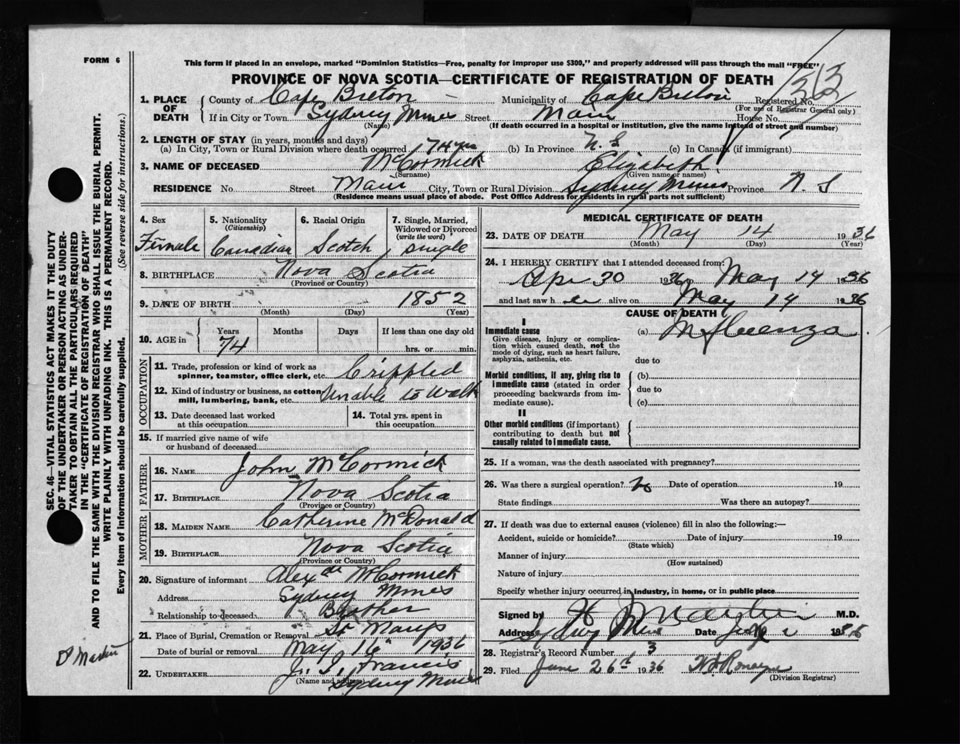 FORM 6
This form if placed in an envelope, marked "Dominion Statistics—Free, penalty for improper use $300," and properly addressed will pass through the mail "FREE"
PROVINCE OF NOVA SCOTIA—CERTIFICATE OF REGISTRATION OF DEATH
1. PLACE OF DEATH County of Cape Breton Municipality of Cape Breton Registered No.
(For use of Registrar General only)
If in City or Town Sydney Mines Street Main House No.
(Name) (If death occurred in a hospital or institution, give the name instead of street and number)
2. LENGTH OF STAY (in years, months and days)
(a) In City, Town or Rural Division where death occurred 74 yrs (b) In Province N. S (c) In Canada (if immigrant)
3. NAME OF DECEASED McCormick Elizabeth
(Surname) (Given name or names)
RESIDENCE No. Street Main City, Town or Rural Division Sydney Mines Province N. S
(Residence means usual place of abode. Post Office Address for residents in rural parts not sufficient)
4. Sex Female
5. Nationality (Citizenship) Canadian
6. Racial Origin Scotch
7. Single, Married, Widowed or Divorced (write the word) single
8. BIRTHPLACE Nova Scotia
(Province or Country)
9. DATE OF BIRTH 1852
(Month) (Day) (Year)
10. AGE in Years 74 Months Days If less than one day old hrs. or min.
OCCUPATION
11. Trade, profession or kind of work as spinner, teamster, office clerk, etc. Crippled
12. Kind of industry or business, as cotton mill, lumbering, bank, etc. Unable to walk
13. Date deceased last worked at this occupation
14. Total yrs. spent in this occupation
15. If married give name of wife or husband of deceased
FATHER
16. NAME John McCormick
17. BIRTHPLACE Nova Scotia
(Province or Country)
MOTHER
18. MAIDEN NAME Catherine McDonald
19. BIRTHPLACE Nova Scotia
(Province or Country)
20. Signature of informant Alexdr McCormick
Address Sydney Mines
Relationship to deceased Brother
21. Place of Burial, Cremation or Removal St Marys
Date of burial or removal May 16" 1936
22. UNDERTAKER J. J. Francis
(Name and address) Sydney Mines
MEDICAL CERTIFICATE OF DEATH
23. DATE OF DEATH May 14 1936
(Month) (Day) (Year)
24. I HEREBY CERTIFY that I attended deceased from:
Apr 30 1936 May 14 1936
and last saw h er alive on May 14 1936
CAUSE OF DEATH
I
Immediate cause (a) Influenza
Give disease, injury or complication which caused death, not the mode of dying, such as heart failure, asphyxia, asthenia, etc.
due to
Morbid conditions, if any, giving rise to immediate cause (stated in order proceeding backwards from immediate cause).
(b)
due to
(c)
II
Other morbid conditions (if important) contributing to death but not causally related to immediate cause.
25. If a woman, was the death associated with pregnancy?
26. Was there a surgical operation? No Date of operation 19
State findings Was there an autopsy?
27. If death was due to external causes (violence) fill in also the following:—
Accident, suicide or homicide? Date of injury 19
(State which)
Manner of injury
(How sustained)
Nature of injury
Specify whether injury occurred in industry, in home, or in public place
Signed by M.D.
Address Sydney Mines Date
28. Registrar's Record Number 3
29. Filed June 26th 1936
(Division Registrar)
SEC. 46—VITAL STATISTICS ACT MAKES IT THE DUTY
OF THE UNDERTAKER OR PERSON ACTING AS UNDER-
TAKER TO OBTAIN ALL THE PARTICULARS REQUIRED
IN THE "CERTIFICATE OF REGISTRATION OF DEATH"
AND TO FILE THE SAME WITH THE DIVISION REGISTRAR WHO SHALL ISSUE THE BURIAL PERMIT.
WRITE PLAINLY WITH UNFADING INK. THIS IS A PERMANENT RECORD.
Every item of information should be carefully supplied. (See reverse side for instructions.)